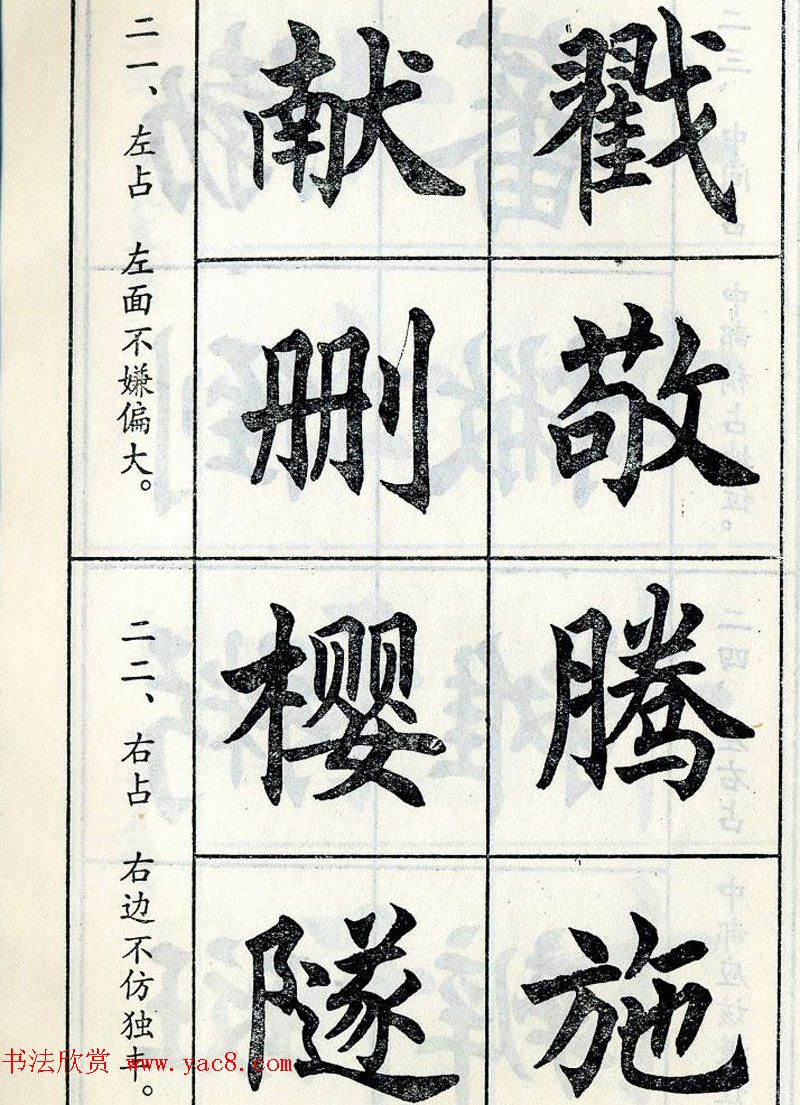 二一、左占 左面不嫌偏大。
献 戳
删 敬
二二、右占 右边不仿独丰。
樱 腾
隧 施
书法欣赏 www.yac8.com